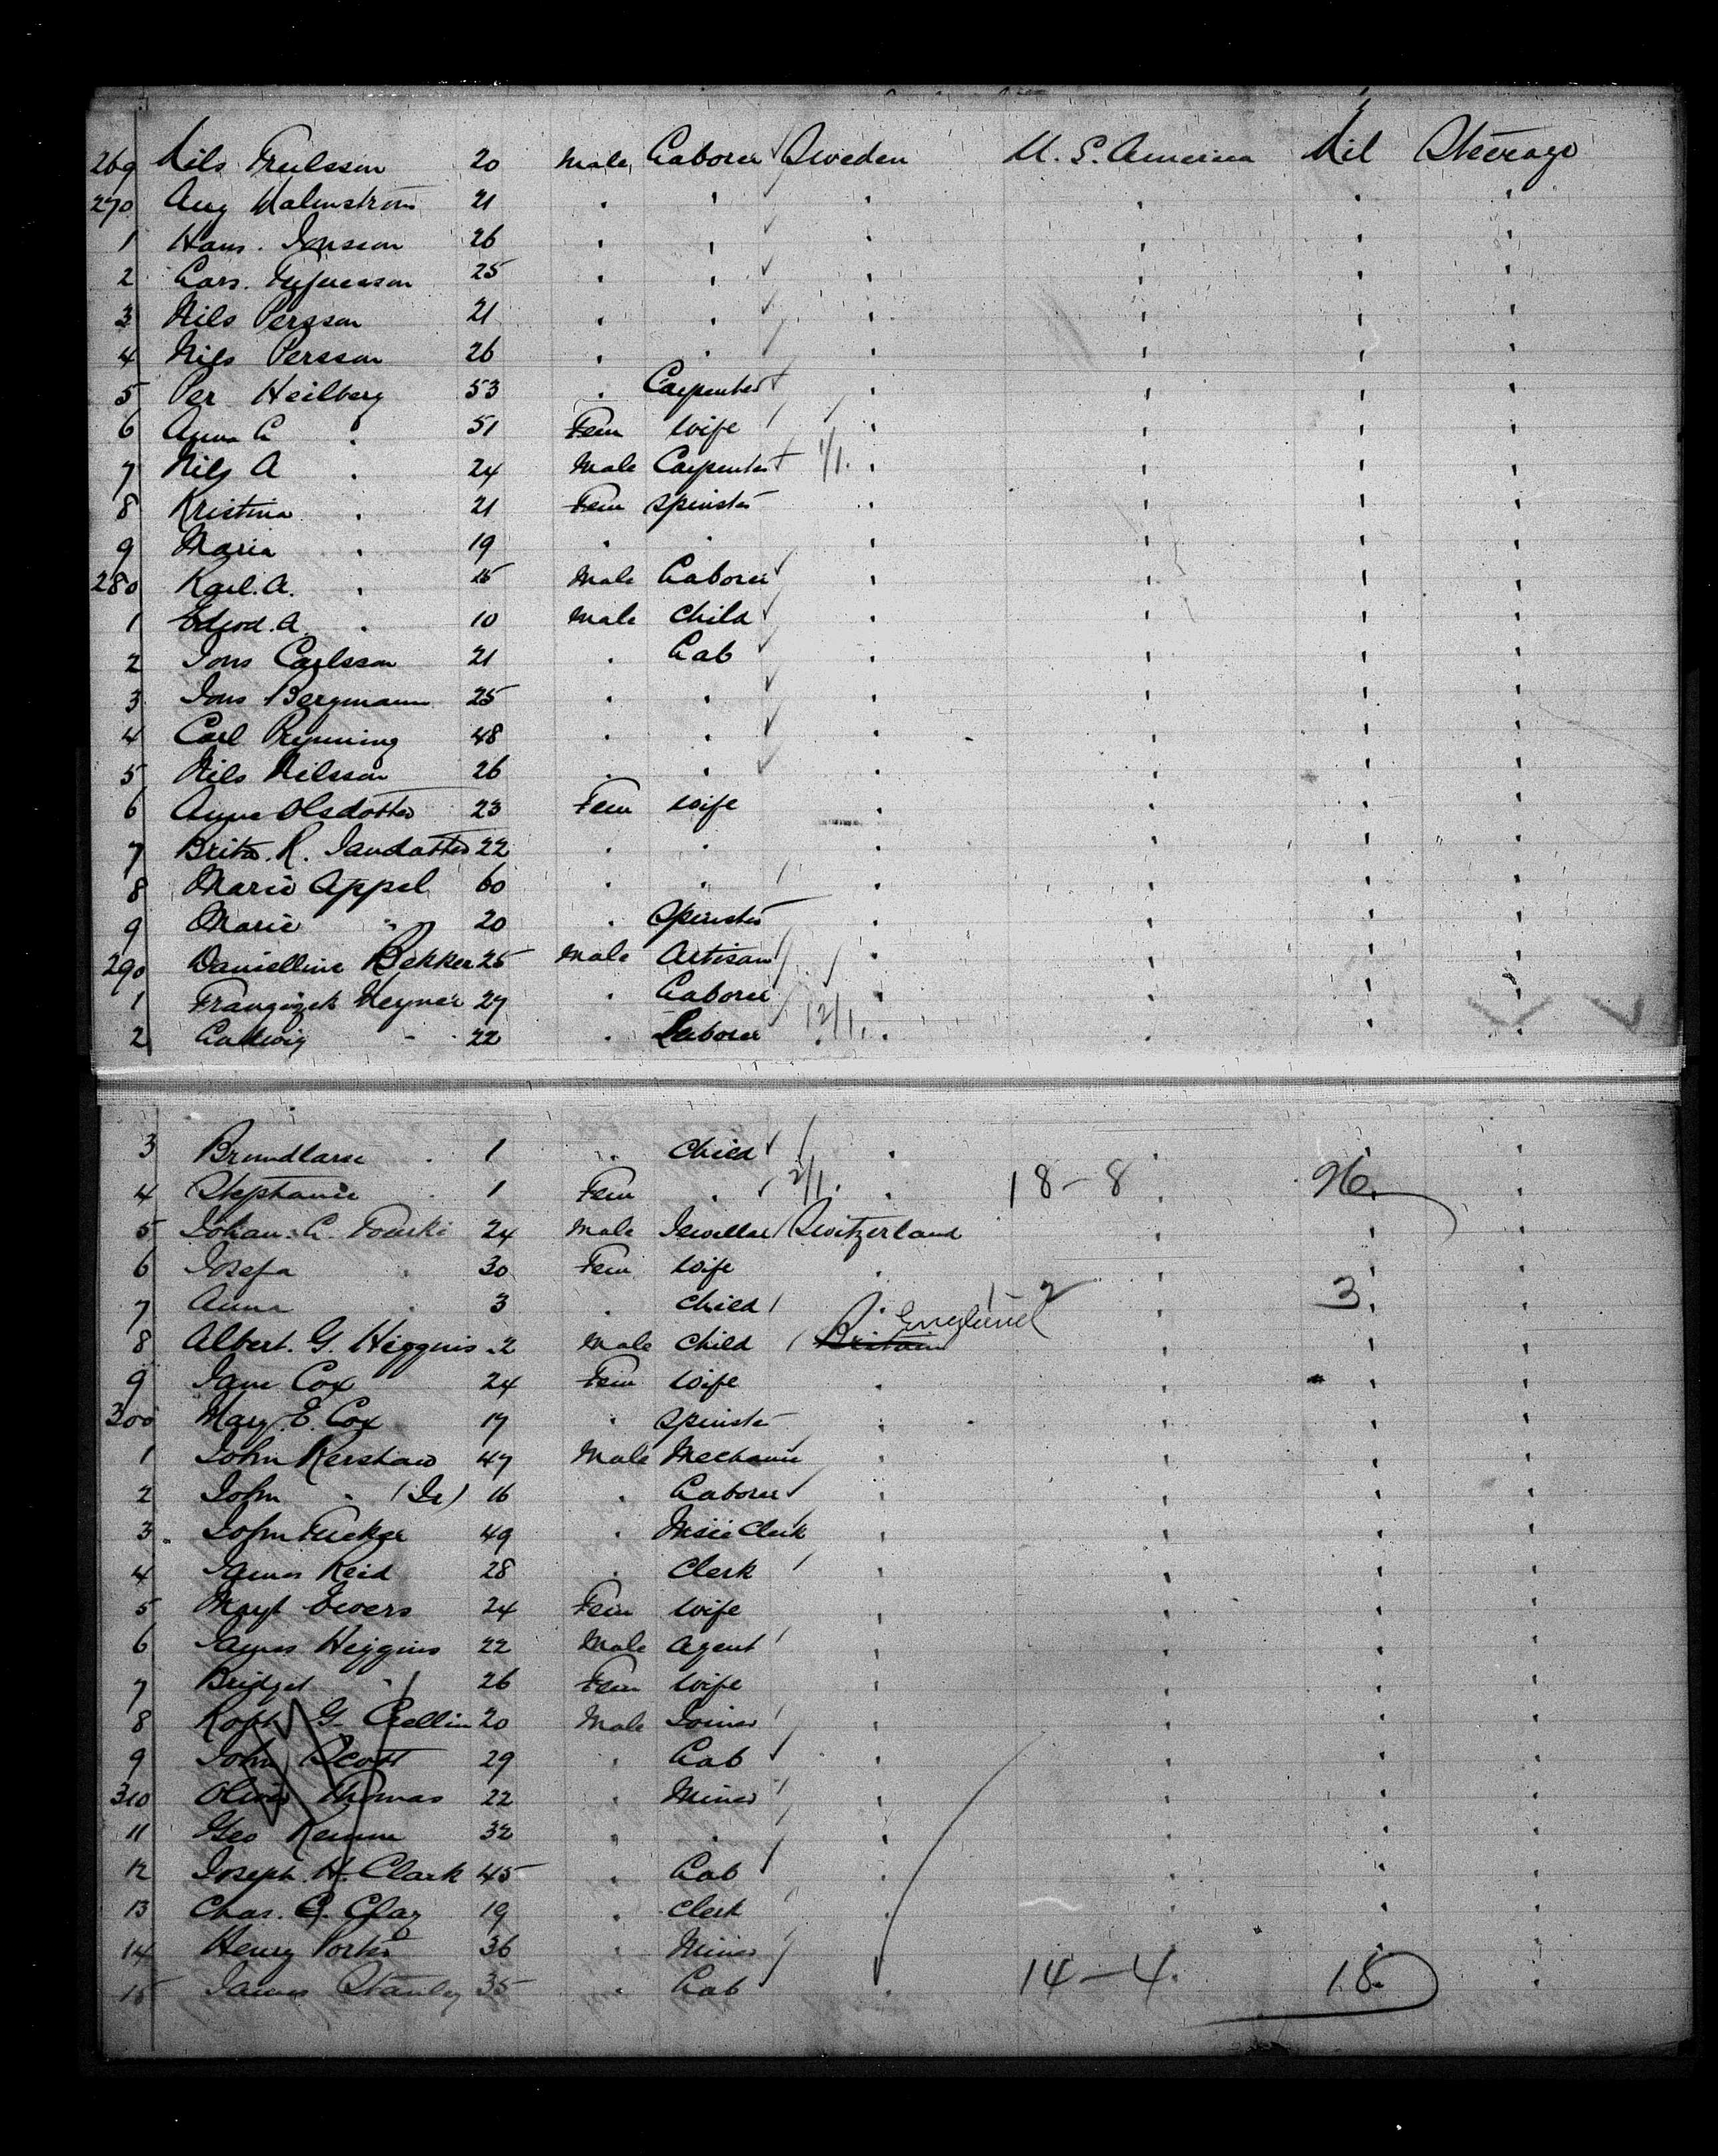 269 Nils Trulsson 20 Male Laborer Sweden U. S. America Nil Steerage
270 Aug Malmstrom 21 " " " " " "
1 Hans. Jonsson 26 " " " " " "
2 Lars. 25 " " " " " "
3 Nils Persson 21 " " " " " "
4 Nils Persson 26 " " " " " "
5 Per Heilberg 53 " Carpenter " " " "
6 Anna C " 51 Fem Wife " " " "
7 Nils A " 24 Male Carpenter 1/1. " " " "
8 Kristina " 21 Fem Spinster " " " "
9 Maria " 19 " " " " " "
280 Karl. A. " 15 Male Laborer " " " "
1 Edwd. A. " 10 Male Child " " " "
2 Jons Carlsson 21 " Lab " " " "
3 Jons Bergmann 25 " " " " " "
4 Carl 48 " " " " " "
5 Nils Nilsson 26 " " " " " "
6 Anna Olsdotter 23 Fem Wife " " " "
7 Brita. R. Jansdotter 22 " " " " " "
8 Marie Appel 60 " " " " " "
9 Marie " 20 " Spinster " " " "
290 Danielline Bekker 25 Male Artisan " " " "
1 Meyner 27 " Laborer " " " "
2 Ludwig " 22 " Laborer 12/1. " " " "
3 " 1 " Child " " " "
4 Stephanie " 1 Fem " 2/1. " 18-8 " 26. "
5 Johan. C. 24 Male Jeweller Switzerland " " "
6 Josefa " 30 Fem Wife " " " "
7 Anna " 3 " Child " 1 2 " 3 "
8 Albert. G. Higgins 2 Male Child Britain England " " "
9 Jane Cox 24 Fem Wife " " " "
300 Mary. E. Cox 17 " Spinster " " " "
1 John Kershaw 47 Male Mechanic " " " "
2 John " (Jr) 16 " Laborer " " " "
3 John Tucker 49 " Clerk " " " "
4 James Reid 28 " Clerk " " " "
5 Mayt Ewers 24 Fem Wife " " " "
6 James Higgins 22 Male Agent " " " "
7 Bridget " 26 Fem Wife " " " "
8 Robt G. Crellin 20 Male Joiner " " " "
9 John Scott 29 " Lab " " " "
310 Oliver Thomas 22 " Miner " " " "
11 Geo 32 " " " " " "
12 Joseph. H. Clark 45 " Lab " " " "
13 Chas. G. Clay 19 " Clerk " " " "
14 Henry Porter 36 " Miner " " " "
15 James Stanley 35 " Lab " 14-4. 18. "